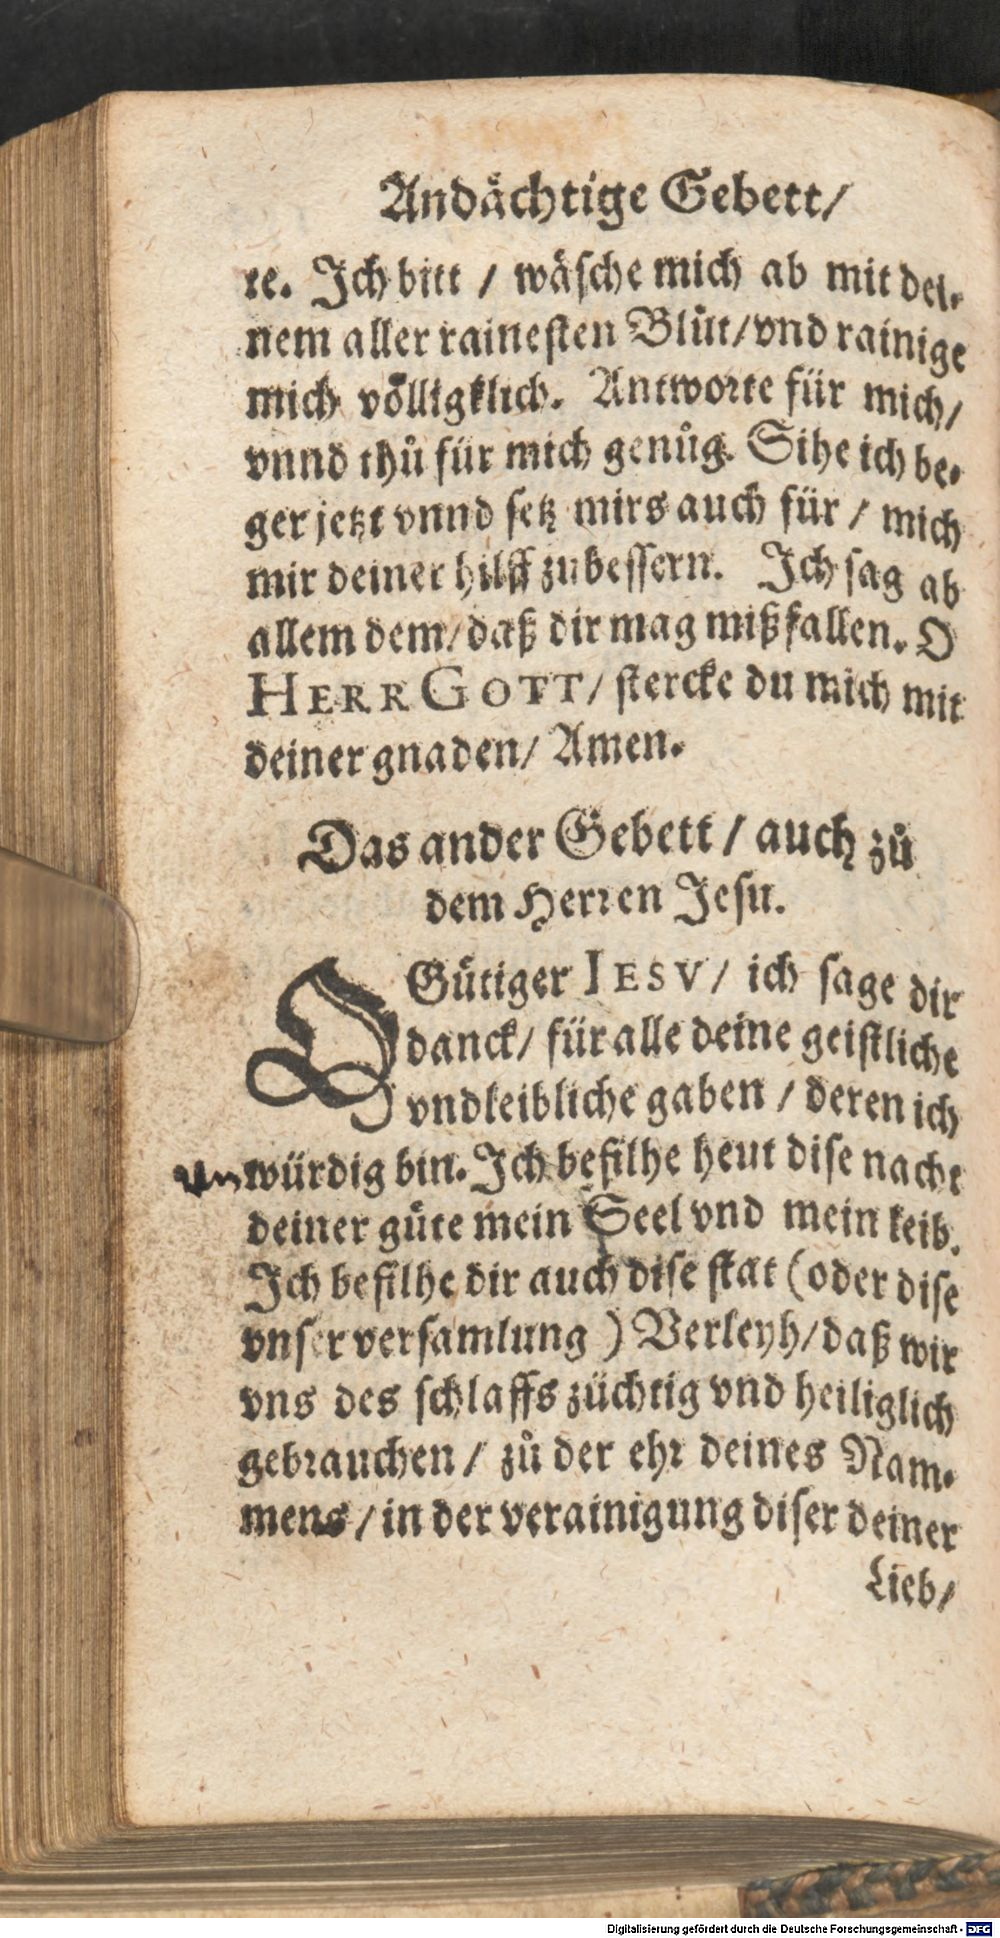 Andächtige Gebett/
re. Ich bitt / wäsche mich ab mit dei-
nem aller rainesten Blůt/vnd rainige
mich völligklich. Antworte für mich/
vnnd thů für mich genůg. Sihe ich be-
ger jetzt vnnd setz mirs auch für / mich
mir deiner hilff zubessern. Ich sag ab
allem dem/daß dir mag mißfallen. O
HERR GOTT/ stercke du mich mit
deiner gnaden/ Amen.
Das ander Gebett / auch zů
dem Herren Jesu.
O Gütiger IESV/ ich sage dir
danck/ für alle deine geistliche
vnd leibliche gaben / deren ich
vnwürdig bin. Ich befilhe heut dise nacht
deiner güte mein Seel vnd mein leib.
Ich befilhe dir auch dise stat (oder dise
vnser versamlung) Verleyh/daß wir
vns des schlaffs züchtig vnd heiliglich
gebrauchen / zů der ehr deines Nam-
mens / in der verainigung diser deiner
Lieb/
Digitalisierung gefördert durch die Deutsche Forschungsgemeinschaft - DFG